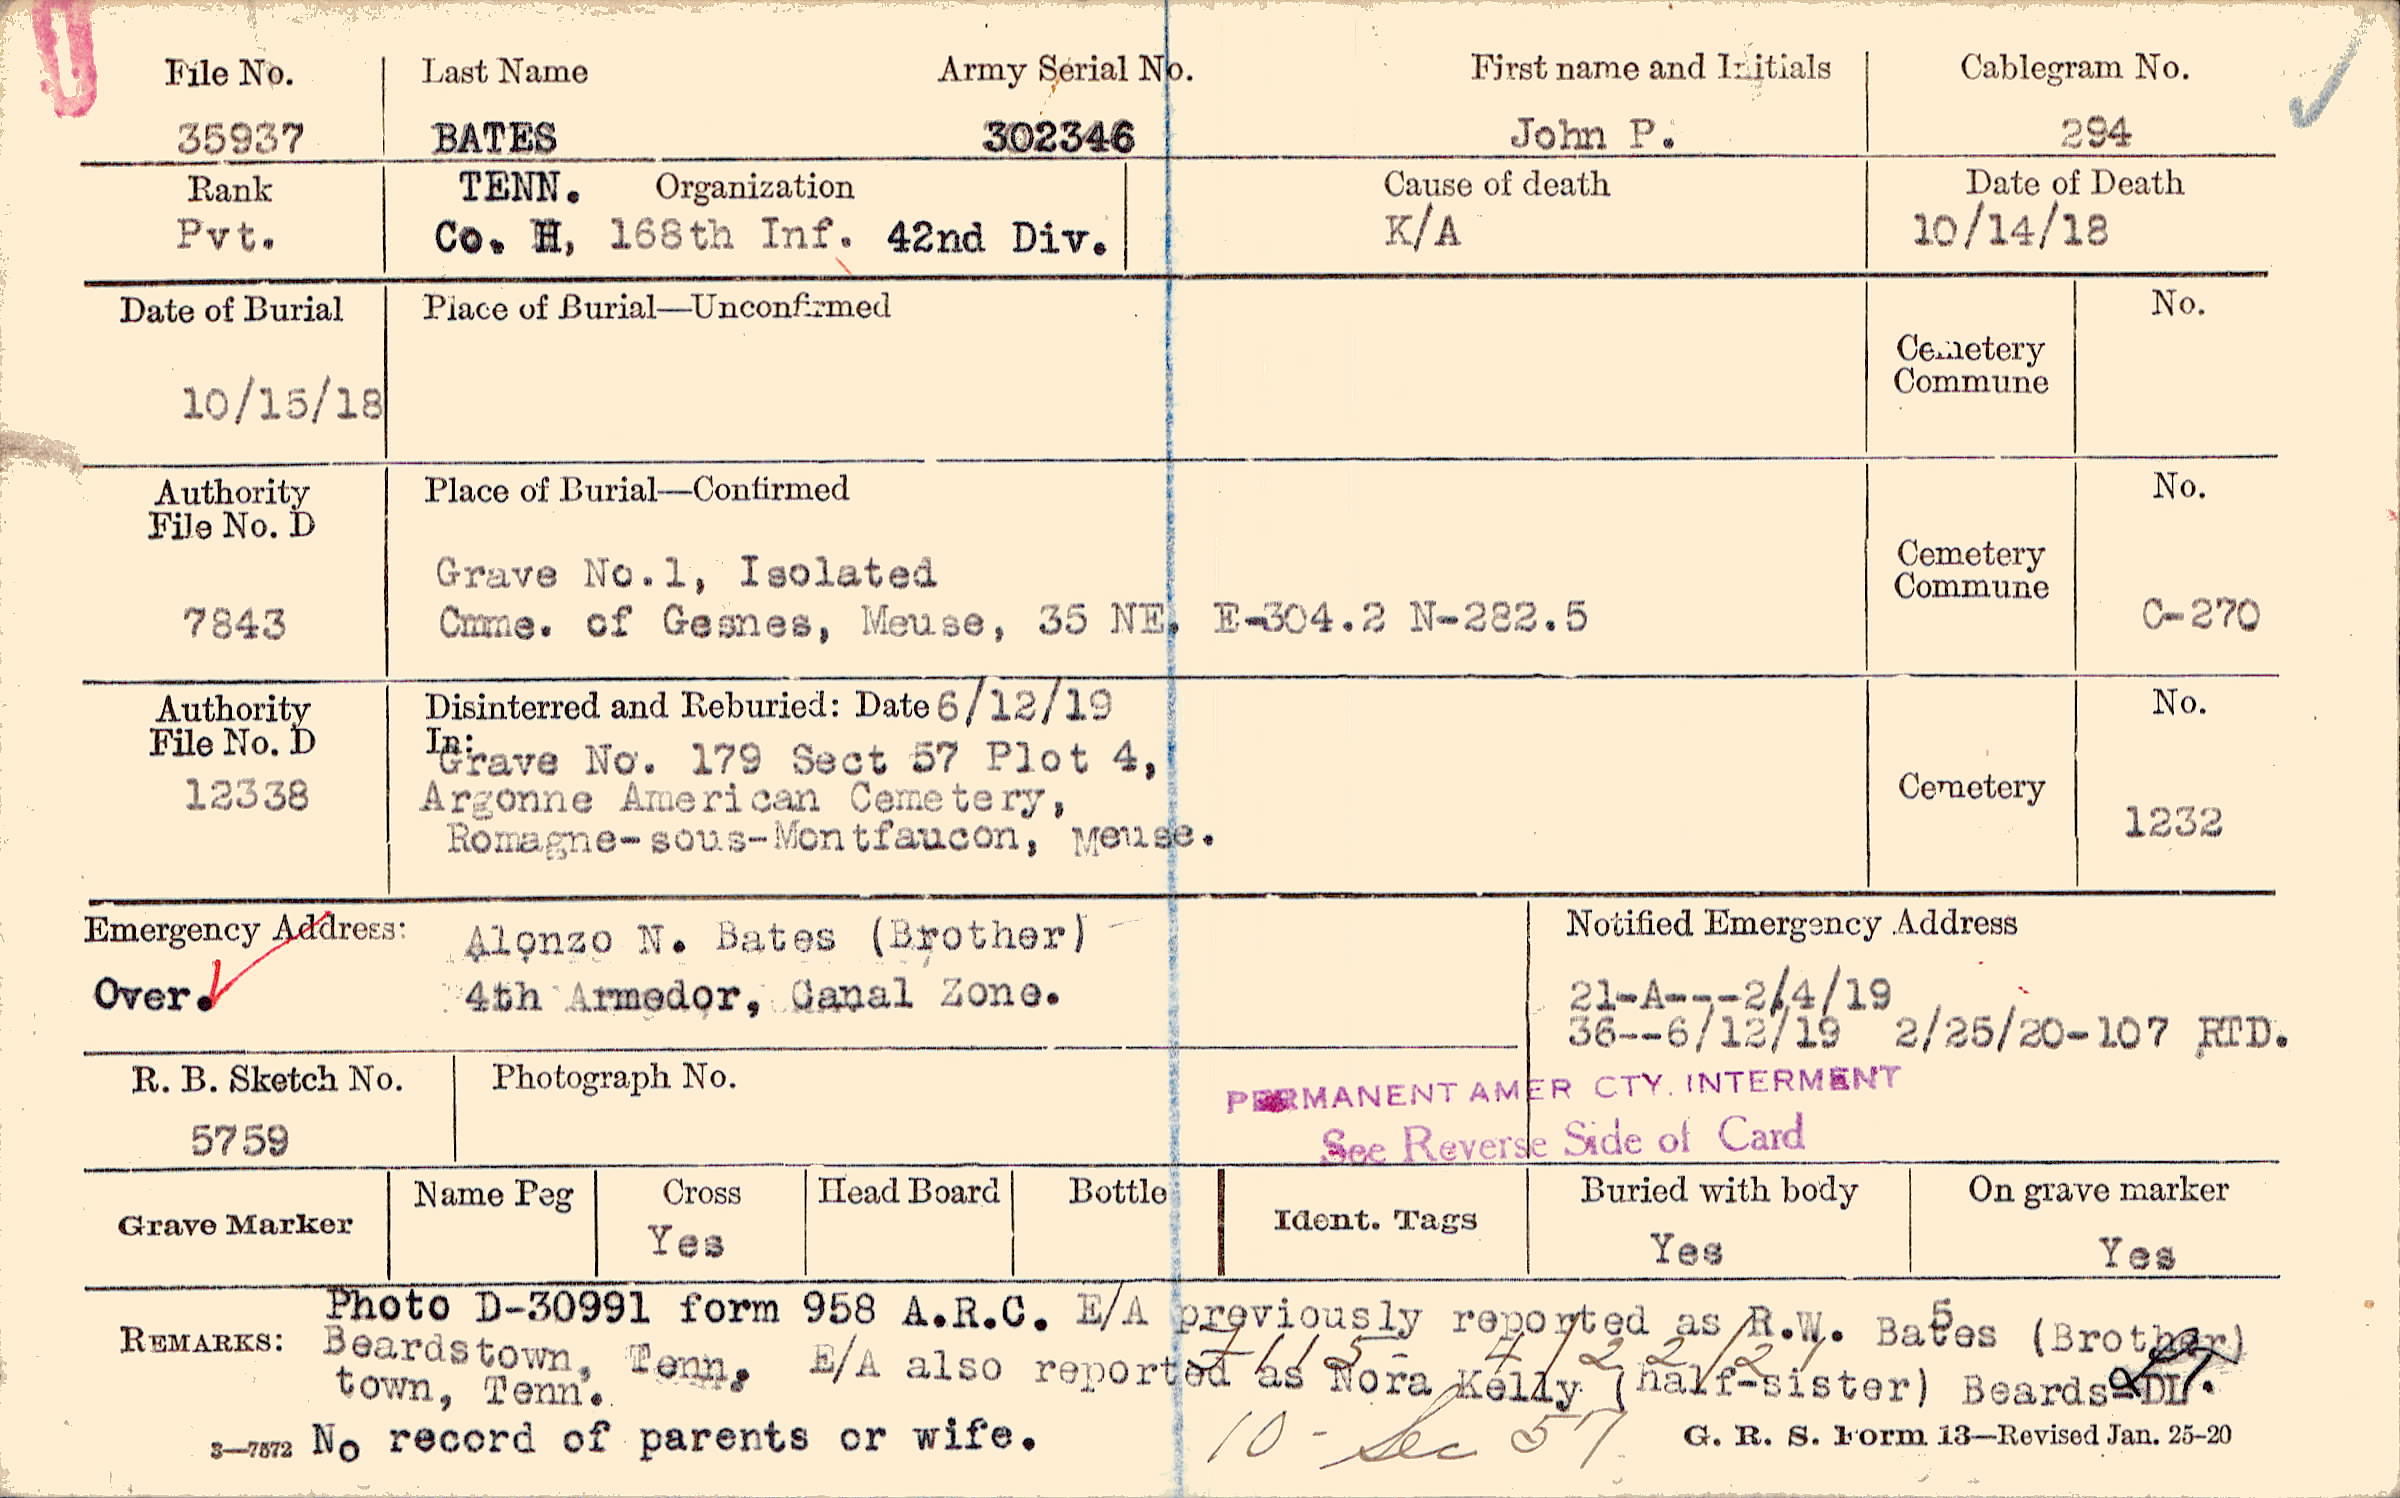 File No. Last Name Army Serial No. First name and Initials Cablegram No.
35937 BATES 302346 John P. 294
Rank TENN. Organization Cause of death Date of Death
Pvt. Co. H, 168th Inf. 42nd Div. K/A 10/14/18
Date of Burial Place of Burial—Unconfirmed No.
Cemetery
Commune
10/15/18
Authority Place of Burial—Confirmed No.
File No. D
Cemetery
Grave No.1, Isolated
Commune
7843 Cmme. of Gesnes, Meuse, 35 NE. E-304.2 N-282.5 C-270
Authority Disinterred and Reburied: Date 6/12/19 No.
File No. D In:
Grave No. 179 Sect 57 Plot 4,
12338 Argonne American Cemetery, Cemetery
Romagne-sous-Montfaucon, Meuse. 1232
Emergency Address: Alonzo N. Bates (Brother) Notified Emergency Address
Over. 4th Armedor, Canal Zone. 21-A---2/4/19
36--6/12/19 2/25/20-107 RTD.
R. B. Sketch No. Photograph No. PERMANENT AMER CTY. INTERMENT
5759 See Reverse Side of Card
Grave Marker Name Peg Cross Head Board Bottle Ident. Tags Buried with body On grave marker
Yes Yes Yes
REMARKS: Photo D-30991 form 958 A.R.C. E/A previously reported as R.W. Bates (Brother)
Beardstown, Tenn. E/A also reported as Nora Kelly (half-sister) Beards-DL.
town, Tenn.
3—7572 No record of parents or wife. 10 - Sec 57 G. R. S. Form 13—Revised Jan. 25-20